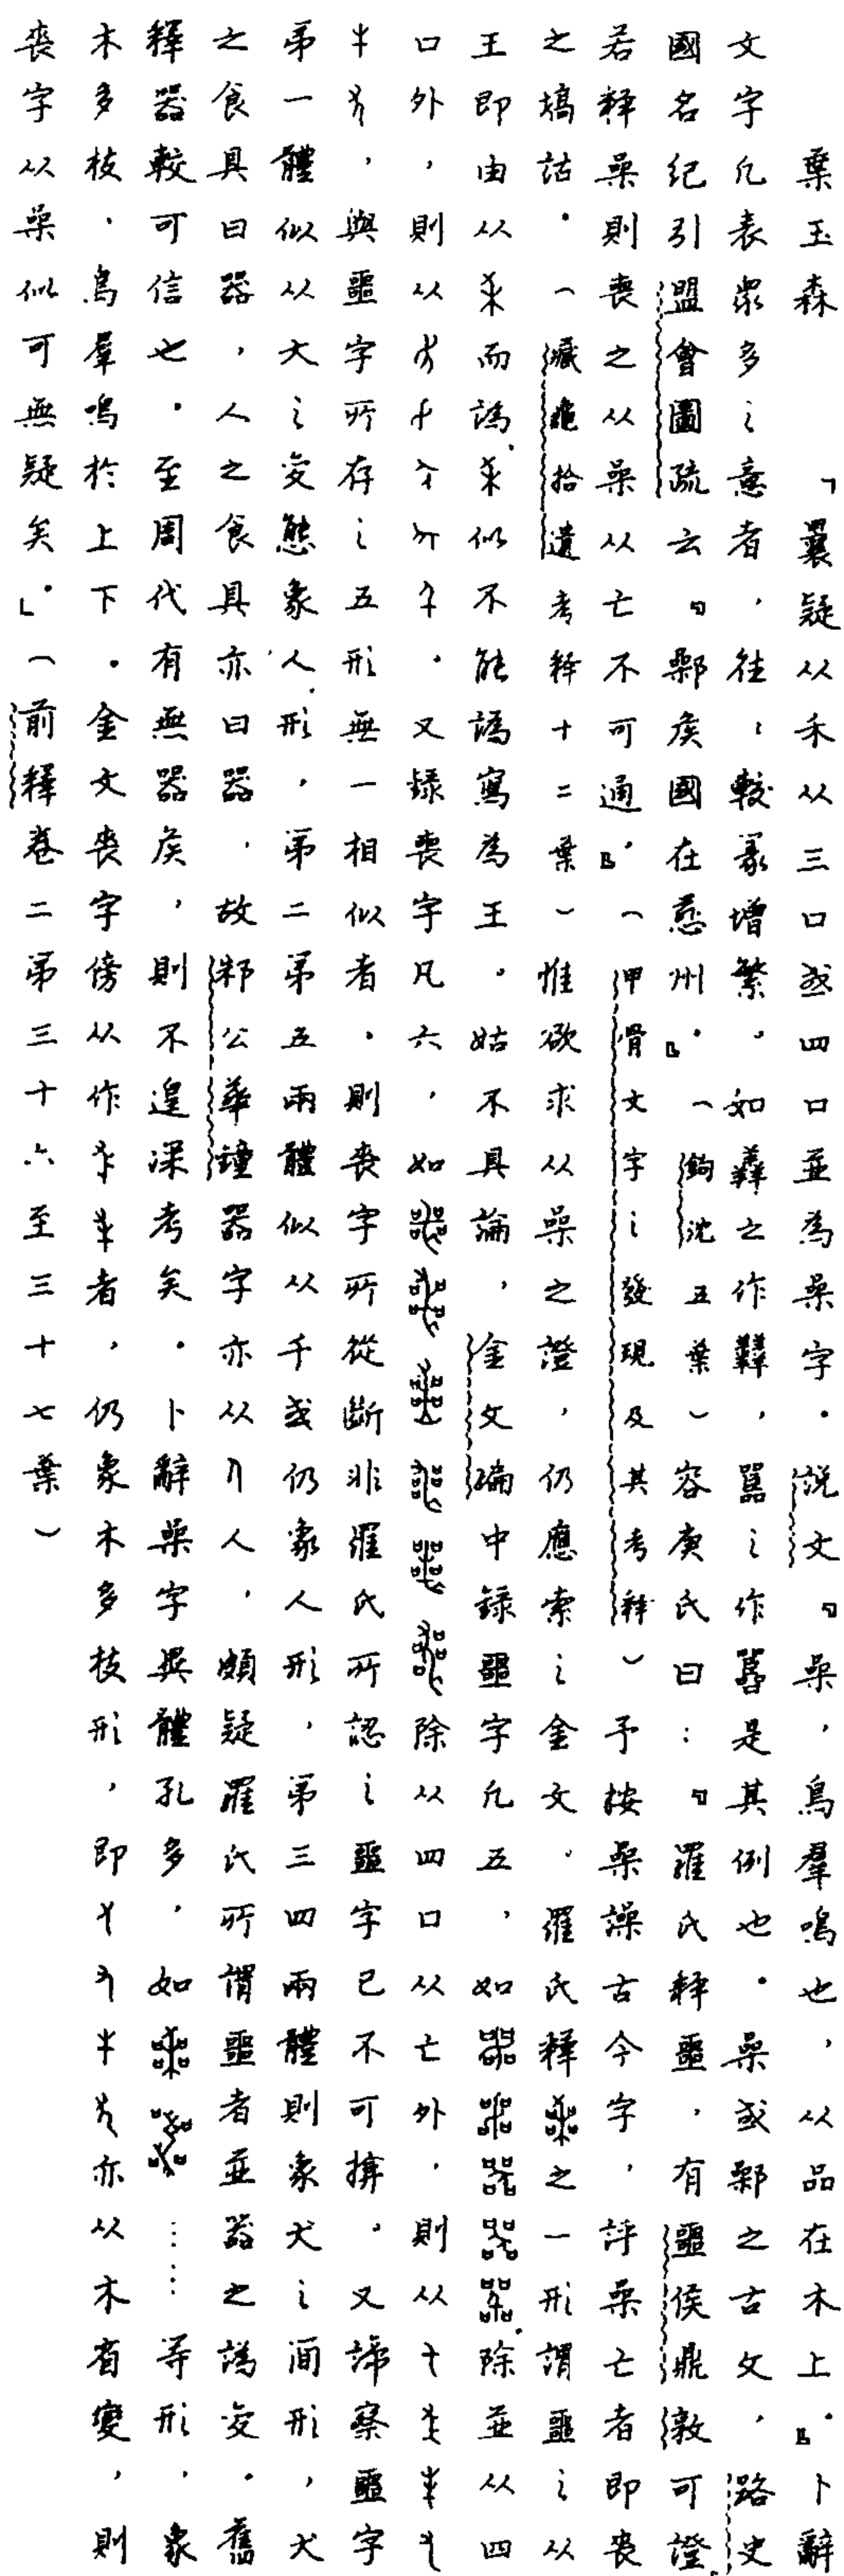 葉玉森　「曩疑从禾从三口或四口並為喿字。說文『喿，鳥羣鳴也，从品在木上。』卜辭
文字凡表衆多之意者，往往較篆增繁。如羴之作羴，嚚之作嚚是其例也。喿或鄵之古文，路史
國名紀引盟會圖疏云『鄵矦國在慈州。』（鉤沈五葉）容庚氏曰：『羅氏釋噩，有噩侯鼎敦可證。
若釋喿則喪之从喿从亡不可通。』（甲骨文字之發現及其考釋）予按喿譟古今字，評喿亡者即喪
之塙詁。（藏龜拾遺考釋十二葉）惟欲求从喿之證，仍應索之金文。羅氏釋之一形謂噩之从
王即由从而譌。似不能譌寫為王。姑不具論，金文編中録噩字凡五，如除並从四
口外，則从。又録喪字凡六，如除从四口从亡外，則从
，與噩字所存之五形無一相似者。則喪字所從斷非羅氏所認之噩字已不可掩。又諦察噩字
弟一體似从大之変態象人形，弟二弟五兩體似从千或仍象人形，弟三四兩體則象犬之側形，犬
之食具曰器，人之食具亦曰器，故邾公華鐘器字亦从人，頗疑羅氏所謂噩者並器之譌変。舊
釋器較可信也。至周代有無器矦，則不遑深考矣。卜辭喿字異體孔多，如……等形，象
木多枝，鳥羣鳴於上下。金文喪字傍从作者，仍象木多枝形，即亦从木省變，則
喪字从喿似可無疑矣。」（前釋卷二弟三十六至三十七葉）